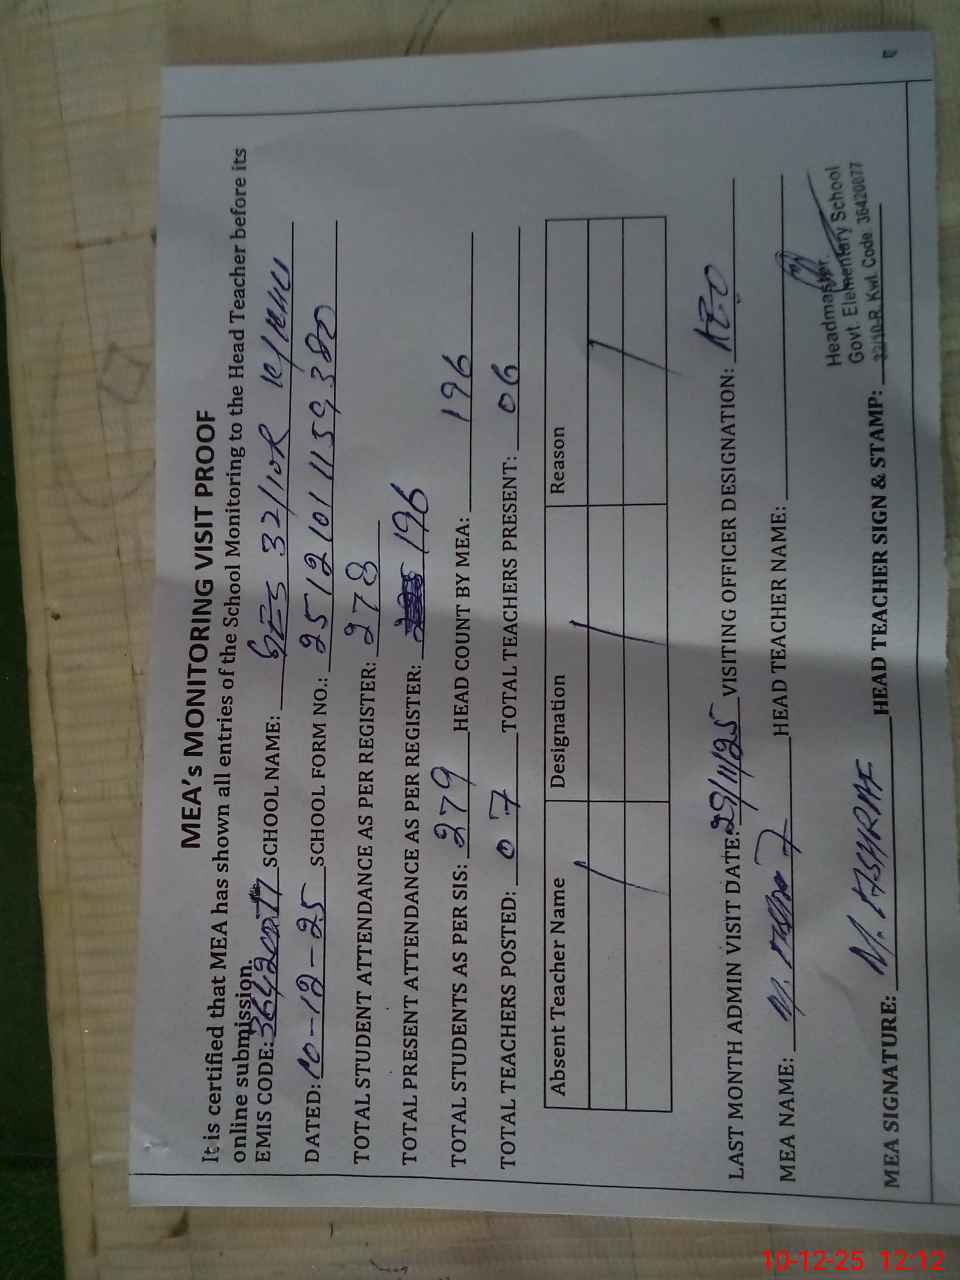 MEA's MONITORING VISIT PROOF
It is certified that MEA has shown all entries of the School Monitoring to the Head Teacher before its
online submission.
EMIS CODE: 36420077 SCHOOL NAME: GES 32/10R
DATED: 10-12-25 SCHOOL FORM NO.: 2512101159380
TOTAL STUDENT ATTENDANCE AS PER REGISTER: 278
TOTAL PRESENT ATTENDANCE AS PER REGISTER: 196
TOTAL STUDENTS AS PER SIS: 279 HEAD COUNT BY MEA: 196
TOTAL TEACHERS POSTED: 07 TOTAL TEACHERS PRESENT: 06
Absent Teacher Name Designation Reason
LAST MONTH ADMIN VISIT DATE: 29/11/25 VISITING OFFICER DESIGNATION: AEO
MEA NAME: M. HEAD TEACHER NAME:
Headmaster
Govt. Elementary School
32/10-R Kwl. Code 36420077
MEA SIGNATURE: M. ASHRAF HEAD TEACHER SIGN & STAMP:
10-12-25 12:12